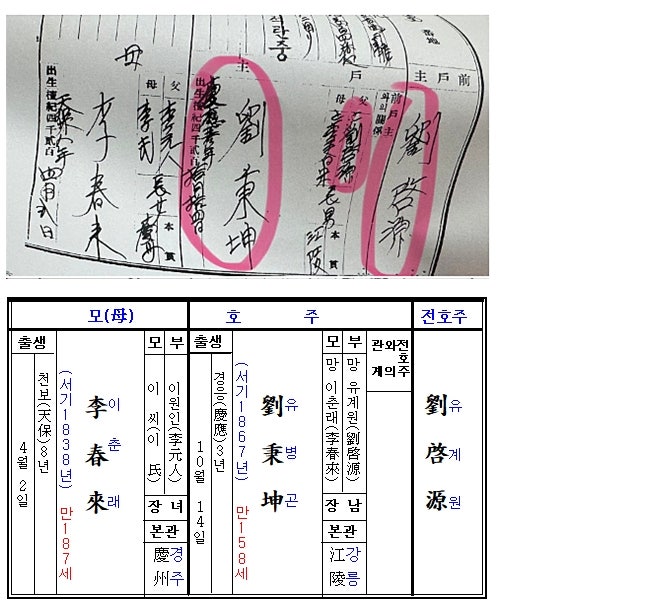 前戶主
劉啓源
前戶主와의關係
父
劉啓源
母
長男
本貫
江陵
戶主
劉秉坤
出生檀紀四千貳百
석란중
母
父
李元人
母
李氏
長女
本貫
李春來
出生檀紀四千貳百
天保八年
四月貳日
모(母)
호 주
전호주
출생
모
부
출생
모
부
전호주와의관계
천보(天保)8년
4월 2일
(서기1838년) 만187세
李春來
이춘래
이 씨(이 氏)
이원인(李元人)
장 녀
본관
慶州
경주
경응(慶應)3년
10월 14일
(서기1867년) 만158세
劉秉坤
유병곤
망 이춘래(李春來)
망 유계원(劉啓源)
장 남
본관
江陵
강릉
劉啓源
유계원